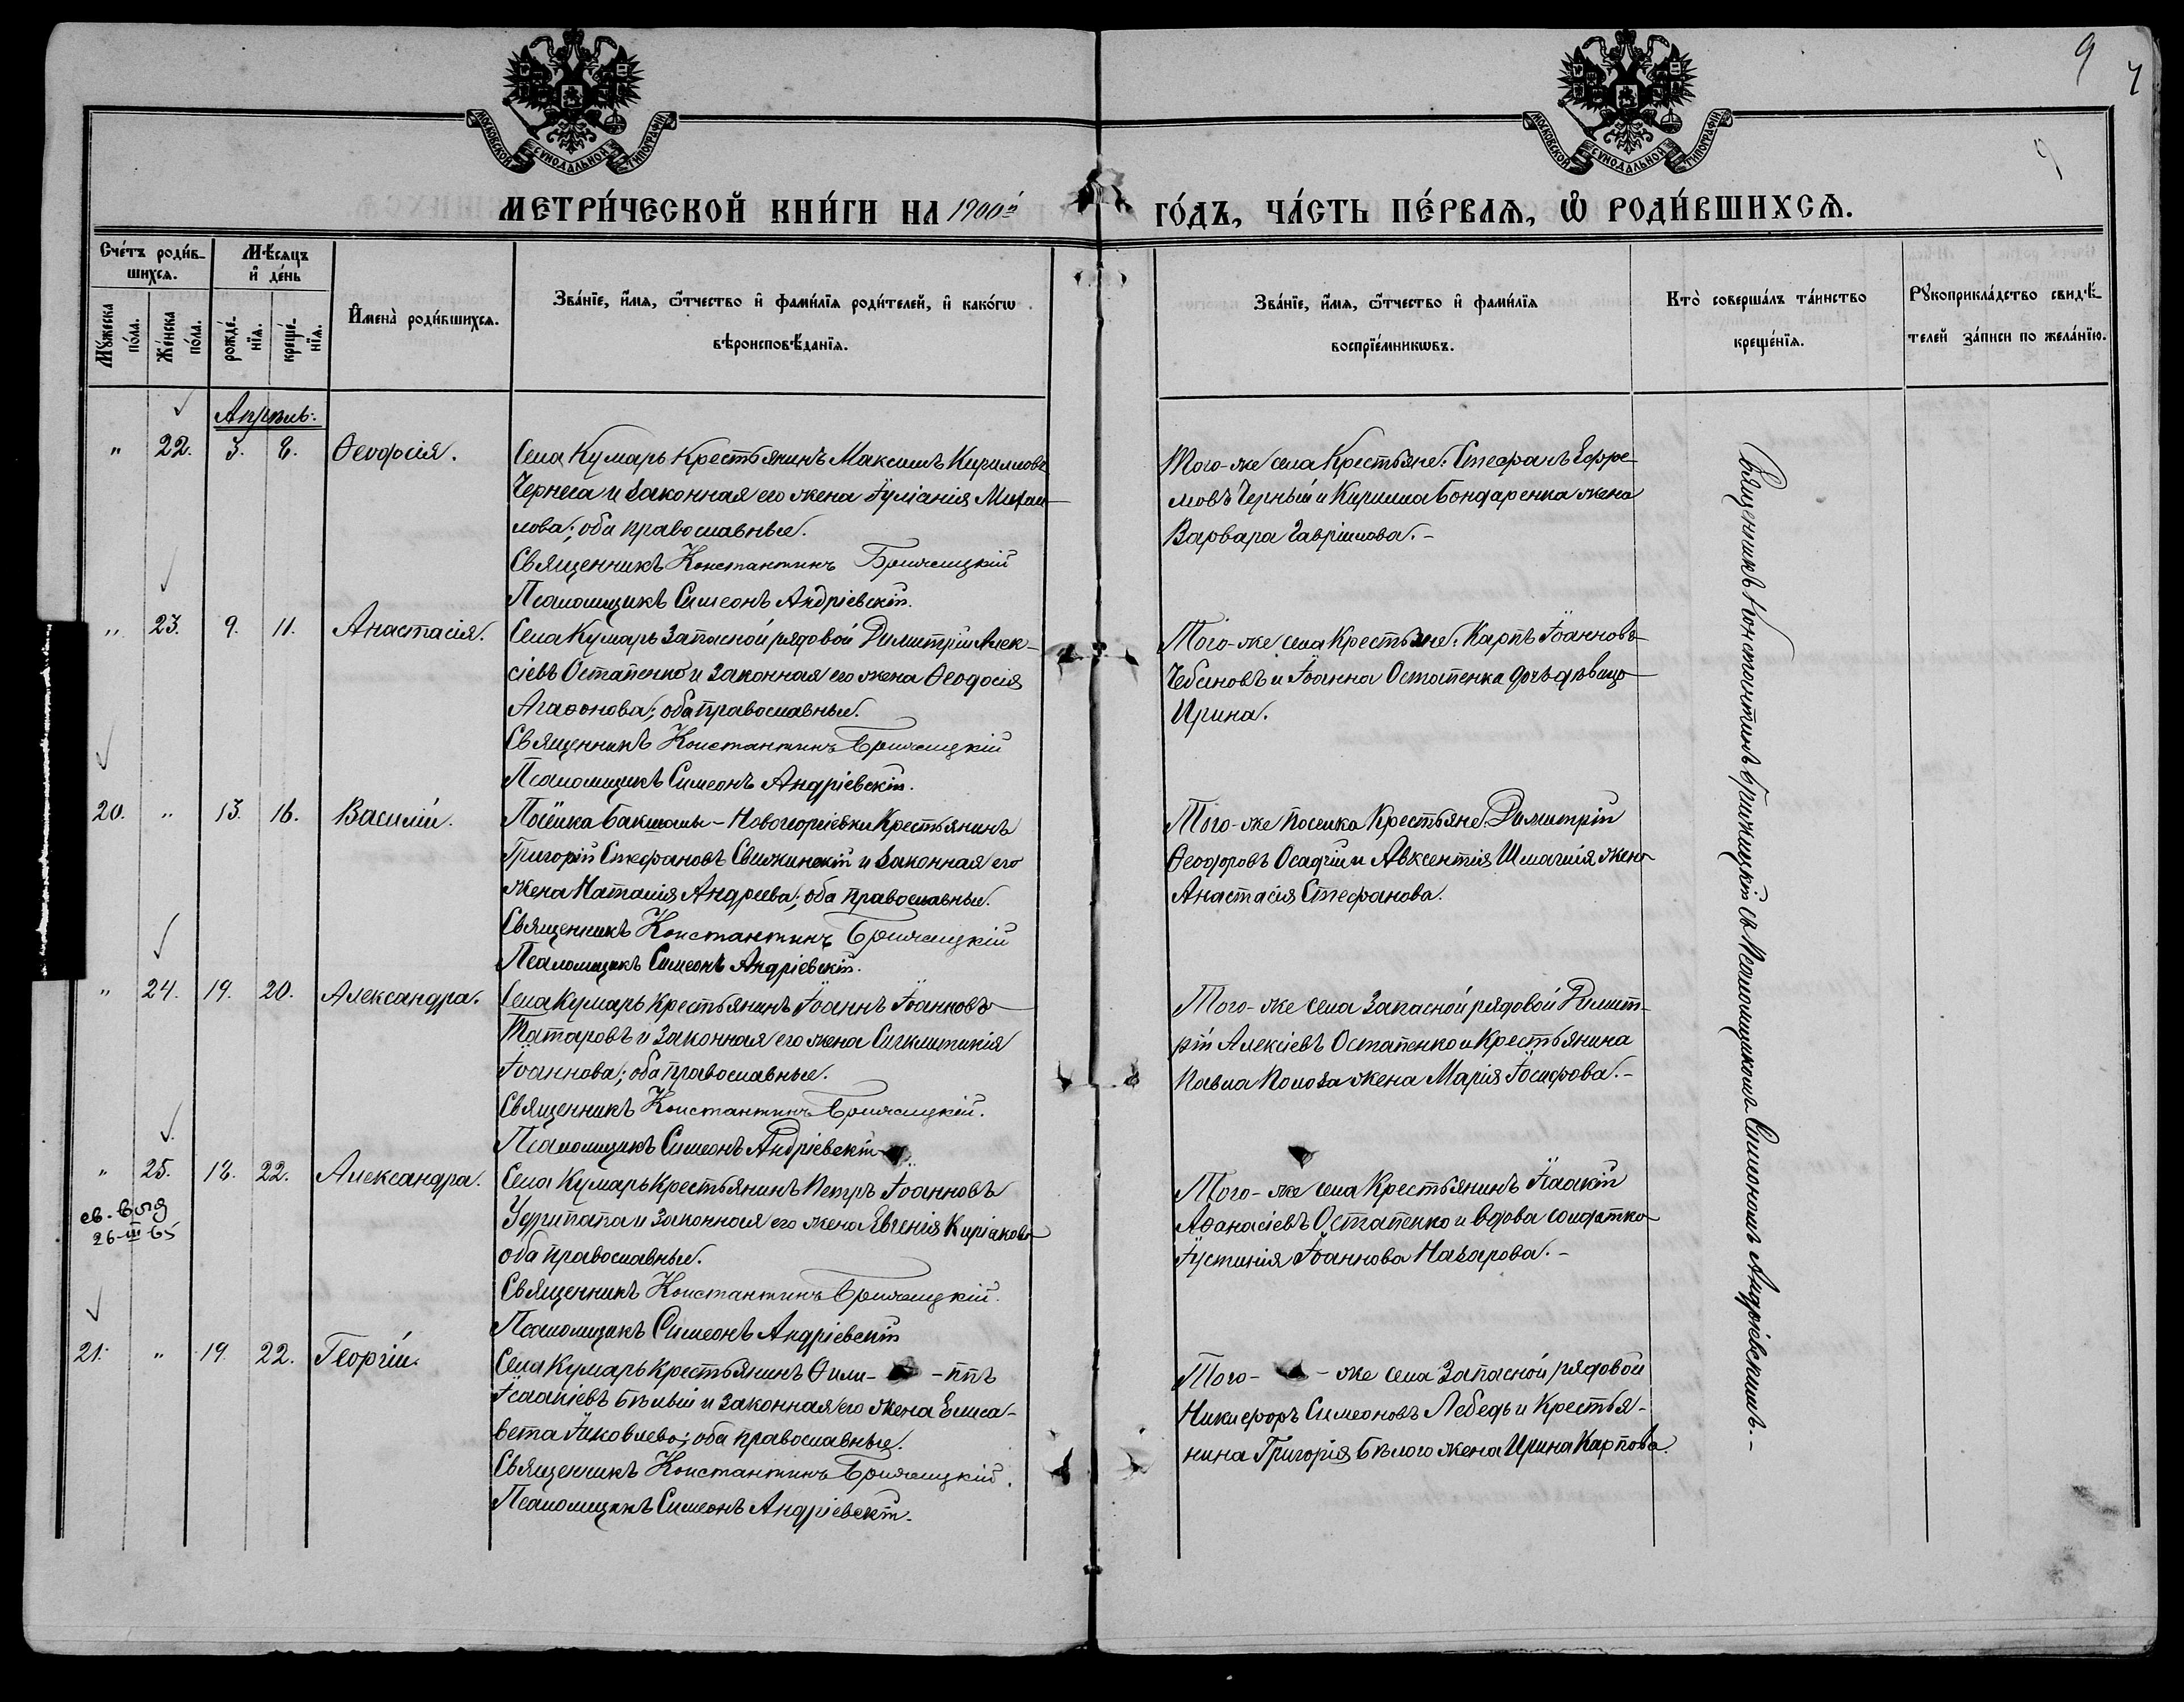 9
7
9
МОСКОВСКОЙ СѴНОДАЛЬНОЙ ТИПОГРАФІИ
МОСКОВСКОЙ СѴНОДАЛЬНОЙ ТИПОГРАФІИ
МЕТРИ́ЧЕСКОЙ КНИ́ГИ НА 1900й ГО́ДЪ, ЧА́СТЬ ПЕ́РВАѦ, Ѡ РОДИ́ВШИХСѦ.
Сче́тъ роди́в-
шихсѧ.
Мꙋ́жеска
по́ла.
Же́нска
по́ла.
Мѣ́сѧцъ
и҆ де́нь
рожде́-
нїѧ.
креще́-
нїѧ.
И҆мена̀ роди́вшихсѧ.
Зва́нїе, и҆́мѧ, ѻ҆́тчество и҆ фами́лїѧ роди́телей, и҆ како́гѡ
вѣроисповѣ́данїѧ.
Зва́нїе, и҆́мѧ, ѻ҆́тчество и҆ фами́лїѧ
воспрїе́мникѡвъ.
Кто̀ соверша́лъ та́инство
креще́нїѧ.
Рꙋкоприкла́дство свидѣ́-
телей за́писи по жела́нїю.
Апрѣль:
" 22. 3. 8. Ѳеодосія.
Села Кумарь Крестьянинъ Максимъ Кирилловъ
Чернега и законная его жена Іуліанія Михаи-
лова; оба православные.
Священникъ Константинъ
Псаломщикъ Симеонъ Андріевскій.
Того-же села Крестьяне: Стефанъ Ефре-
мовъ Черный и Кирилла Бондаренка жена
Варвара Гавріилова.-
" 23. 9. 11. Анастасія.
Села Кумарь запасной рядовой Димитрій Алек-
сіевъ Остапенко и законная его жена Ѳеодосія
Агаѳонова; оба православные.
Священникъ Константинъ
Псаломщикъ Симеонъ Андріевскій.
Того-же села Крестьяне: Карпъ Іоанновъ
и Іоанна Остапенка дочь дѣвица
Ирина.
20. " 13. 16. Василій.
Посёлка Бакшалы-Новогеоргіевки Крестьянинъ
Григорій Стефановъ и законная его
жена Наталія Андреева; оба православные.
Священникъ Константинъ
Псаломщикъ Симеонъ Андріевскій.
Того-же поселка Крестьяне: Димитрій
Ѳеодоровъ Осадчій и Авксентія жена
Анастасія Стефанова.
" 24. 19. 20. Александра.
Села Кумарь крестьянинъ Іоаннъ Іоанновъ
Татаровъ и законная его жена Сигклитикія
Іоаннова; оба православные.
Священникъ Константинъ
Псаломщикъ Симеонъ Андріевскій
Того-же села запасной рядовой Димит-
рій Алексіевъ Остапенко и Крестьянина
Павла жена Марія Іосифова.-
" 25. 18. 22. Александра.
26-III-65
Села Кумарь Крестьянинъ Петръ Іоанновъ
и законная его жена Евгенія Киріакова
оба православные.
Священникъ Константинъ
Псаломщикъ Симеонъ Андріевскій
Того-же села Крестьянинъ Ісаакій
Аѳанасіевъ Остапенко и вдова солдатка
Іустинія Іоаннова Назарова.-
21. " 19. 22. Георгій.
Села Кумарь крестьянинъ Фили- -ппъ
Ісаакіевъ Бѣлый и законная его жена Елиса-
вета Іаковлева; оба православные.
Священникъ Константинъ
Псаломщикъ Симеонъ Андріевскій.
Того- -же села запасной рядовой
Никифоръ Симеоновъ Лебедь и Крестья-
нина Григорія Бѣлого жена Ирина Карпова.
Священникъ Константинъ съ Псаломщикомъ Симеономъ Андріевскимъ.-